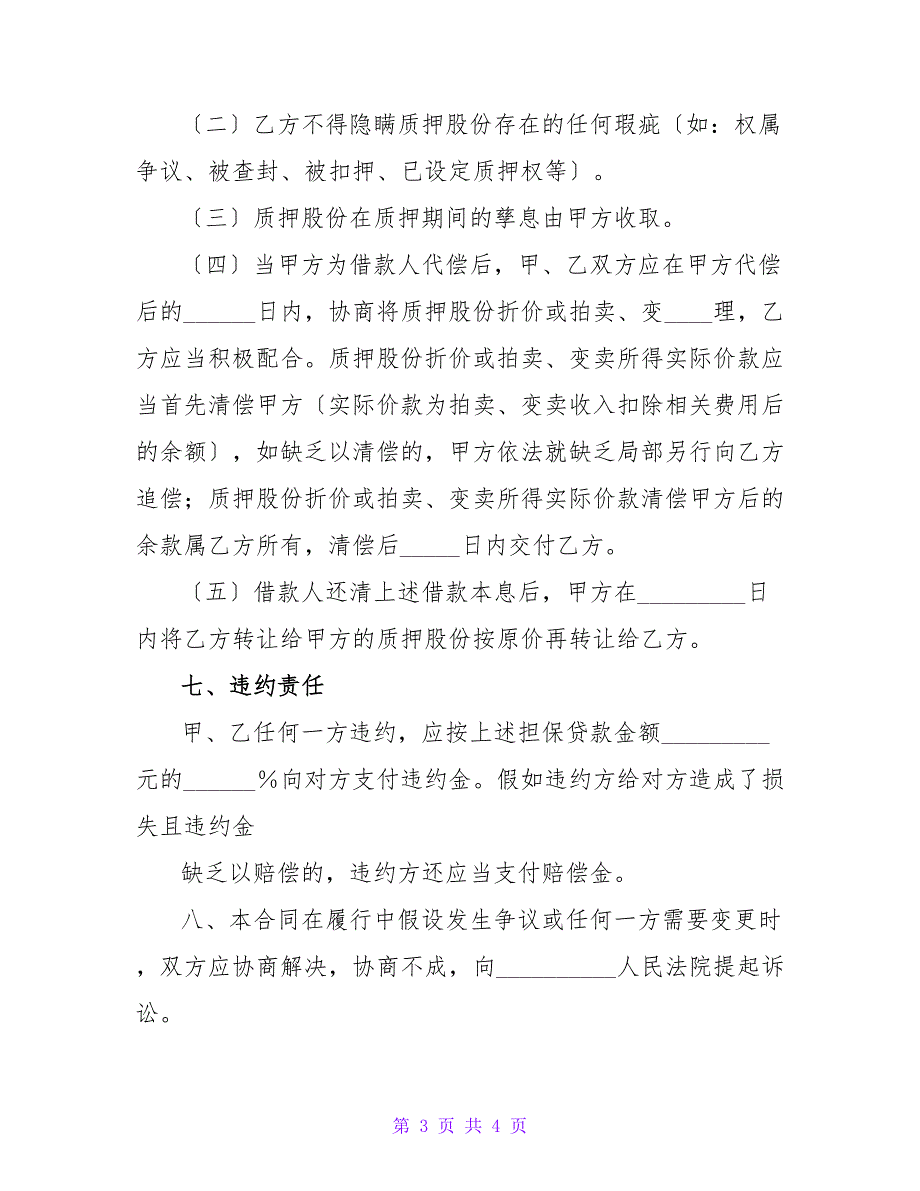 〔二〕乙方不得隐瞒质押股份存在的任何瑕疵〔如：权属
争议、被查封、被扣押、已设定质押权等〕。
〔三〕质押股份在质押期间的孳息由甲方收取。
〔四〕当甲方为借款人代偿后，甲、乙双方应在甲方代偿
后的______日内，协商将质押股份折价或拍卖、变____理，乙
方应当积极配合。质押股份折价或拍卖、变卖所得实际价款应
当首先清偿甲方〔实际价款为拍卖、变卖收入扣除相关费用后
的余额〕，如缺乏以清偿的，甲方依法就缺乏局部另行向乙方
追偿；质押股份折价或拍卖、变卖所得实际价款清偿甲方后的
余款属乙方所有，清偿后_____日内交付乙方。
〔五〕借款人还清上述借款本息后，甲方在_________日
内将乙方转让给甲方的质押股份按原价再转让给乙方。
七、违约责任
甲、乙任何一方违约，应按上述担保贷款金额_________
元的______％向对方支付违约金。假如违约方给对方造成了损
失且违约金
缺乏以赔偿的，违约方还应当支付赔偿金。
八、本合同在履行中假设发生争议或任何一方需要变更时
，双方应协商解决，协商不成，向__________人民法院提起诉
讼。
第 3 页 共 4 页